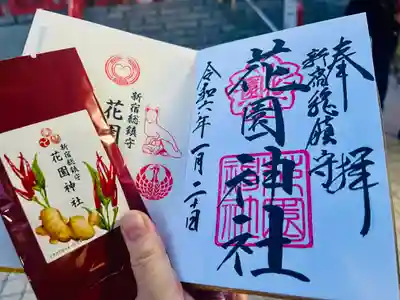 奉拝
新宿総鎮守
花園神社
令和六年一月二十日
新宿総鎮守
花園
新宿総鎮守
花園神社